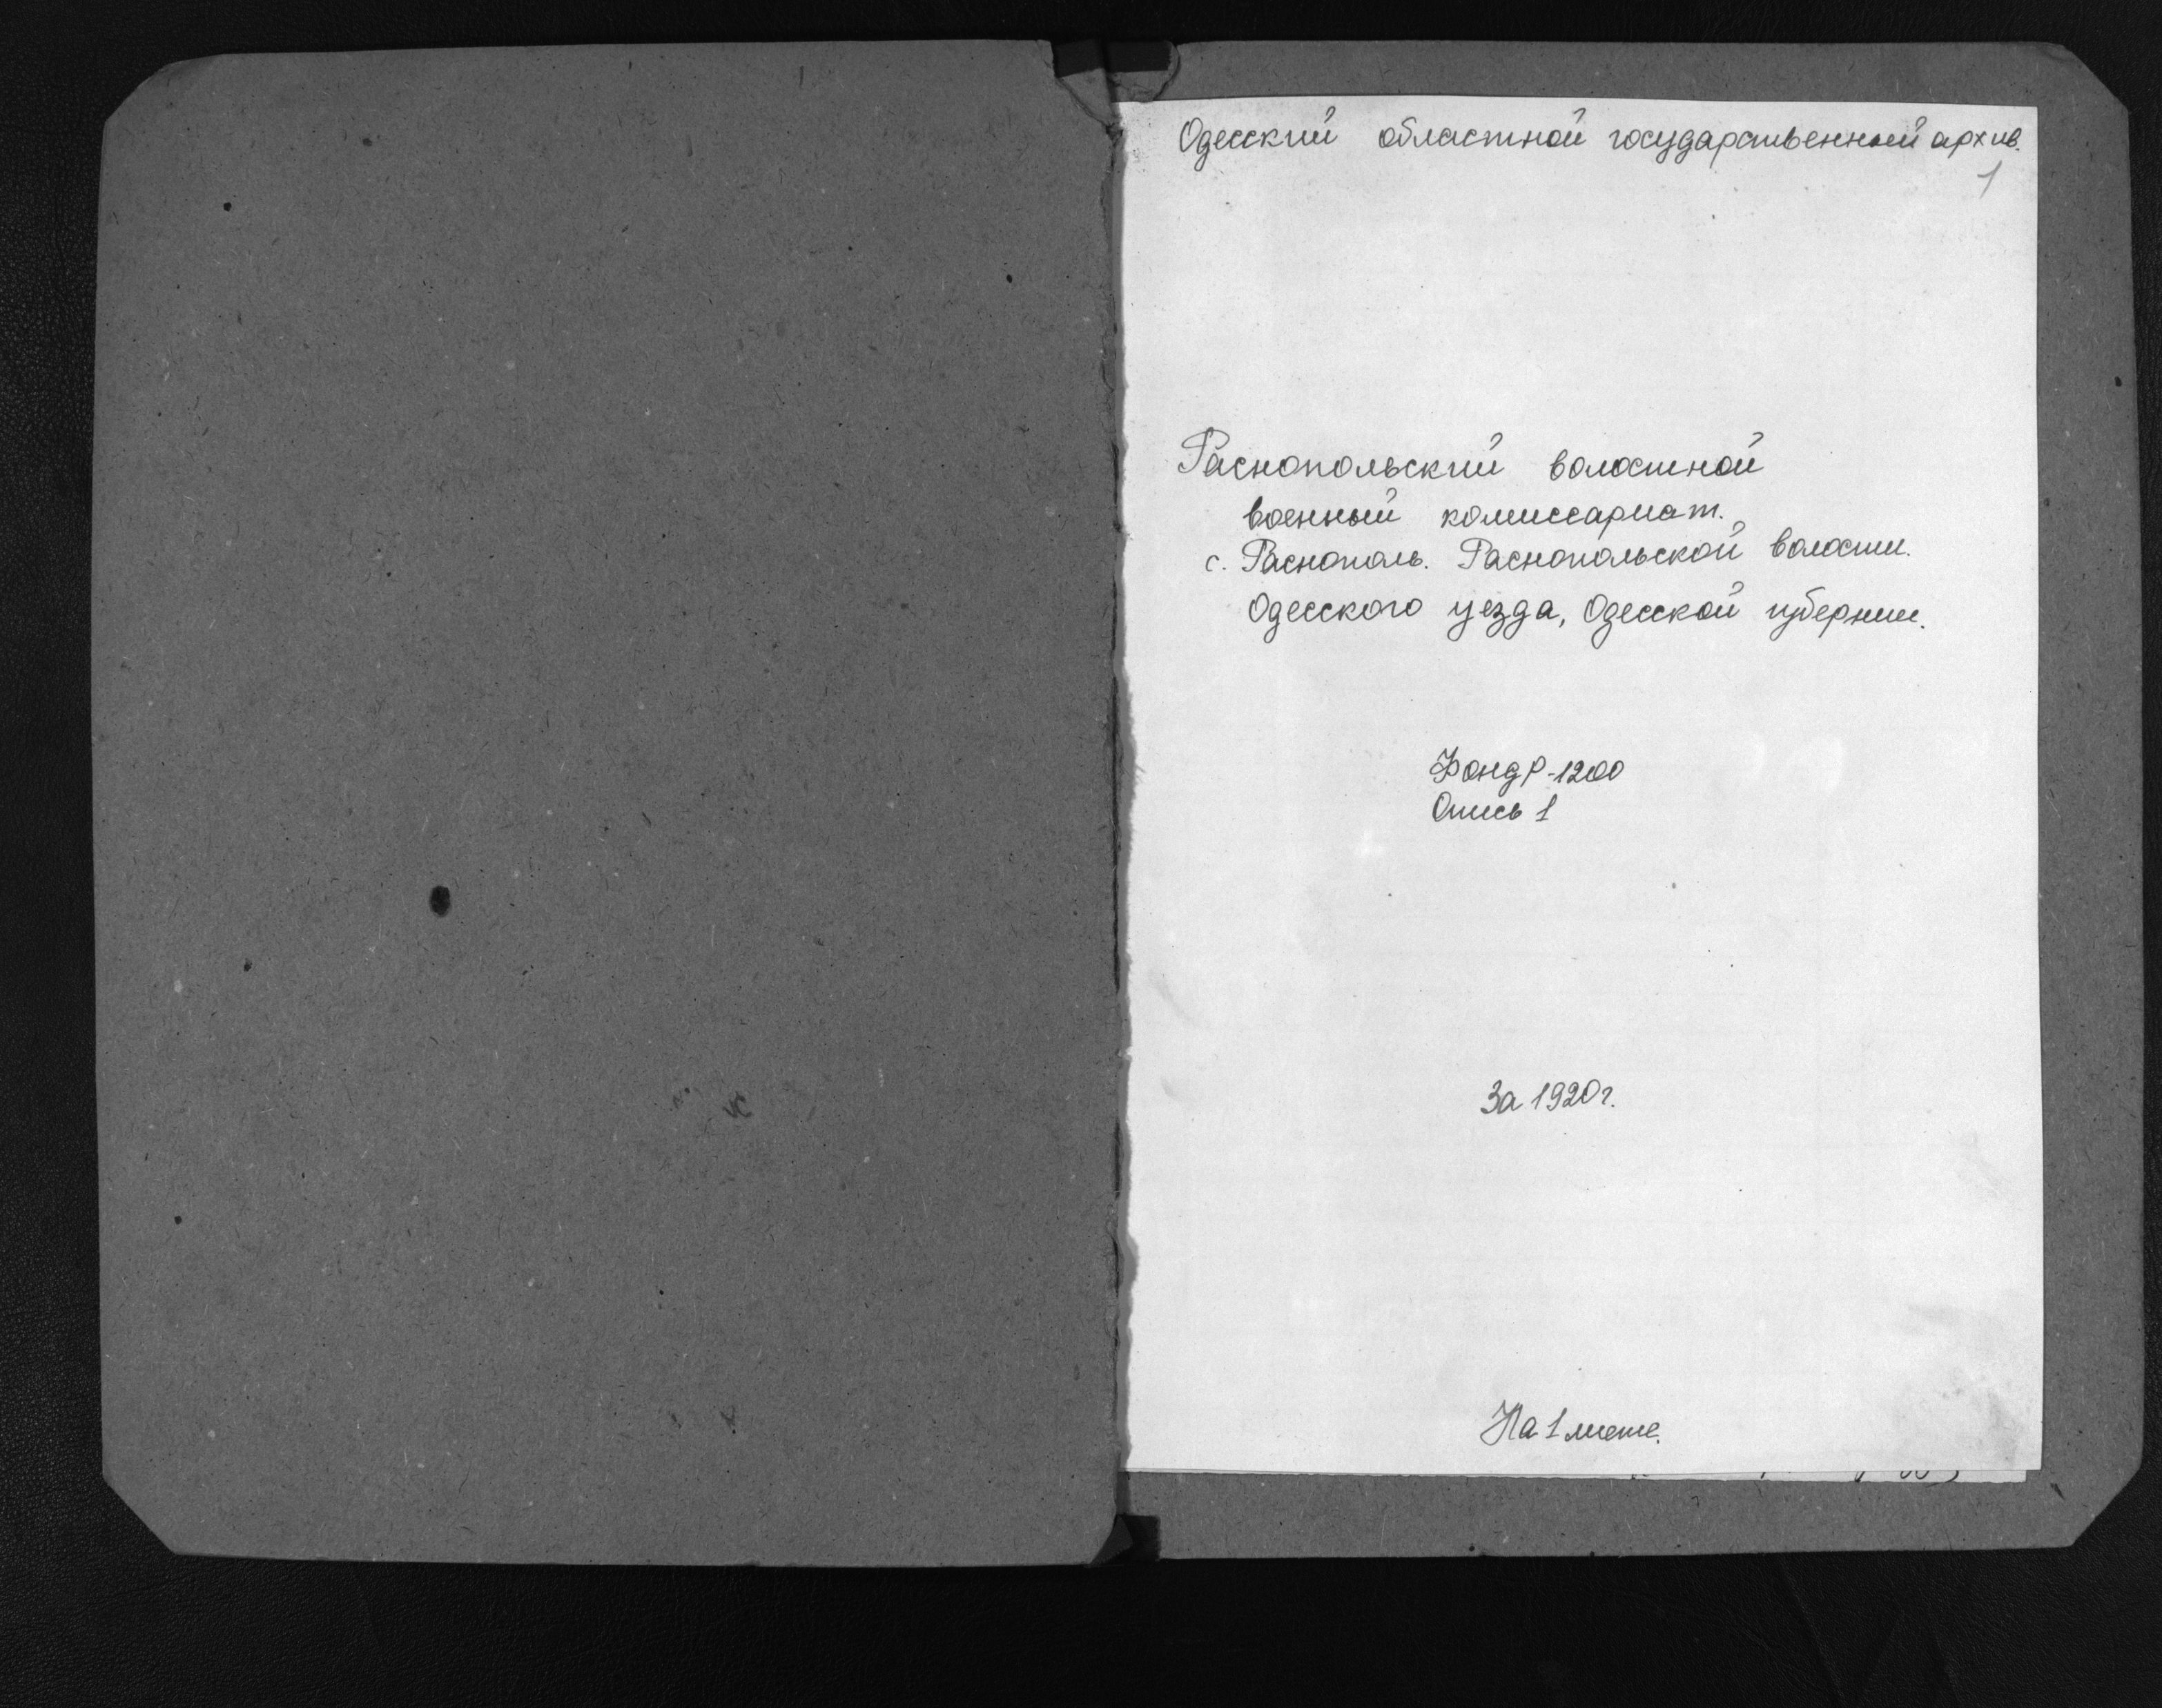 Одесский областной государственный архив.
1
Распопольский волостной
военный комиссариат.
с. Располь. Распопольской волости.
Одесского уезда, Одесской губернии.
Фонд Р-1200
Опись 1
За 1920 г.
На 1 листе.